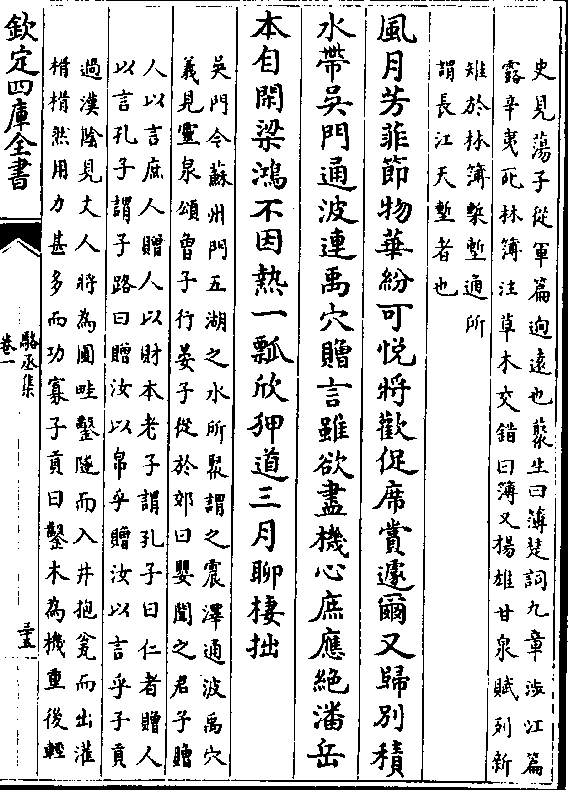 史見蕩子從軍篇逈遠也䕺生曰薄楚詞九章涉江篇
露辛夷死林簿注草木交錯曰簿又楊雄甘泉賦列新
雉於林簿槧塹通所
謂長江天塹者也
風月芳菲節物華紛可悦將歡促席賞遽爾又歸別積
水帶吳門通波連禹穴贈言雖欲盡機心庶應絶潘岳
本自閑梁鴻不因熱一瓢欣狎道三月聊棲拙
吳門今蘇州門五湖之水所聚謂之震澤通波禹穴
義見靈泉頌曽子行晏子從於郊曰嬰聞之君子贈
人以言庶人贈人以財本老子謂孔子曰仁者贈人
以言孔子謂子路曰贈汝以帛乎贈汝以言乎子貢
過漢陰見丈人將為圃畦鑿隧而入井抱瓮而出灌
㮐㮐然用力甚多而功寡子貢曰鑿木為機重後輕
欽定四庫全書
駱丞集
卷一
三五